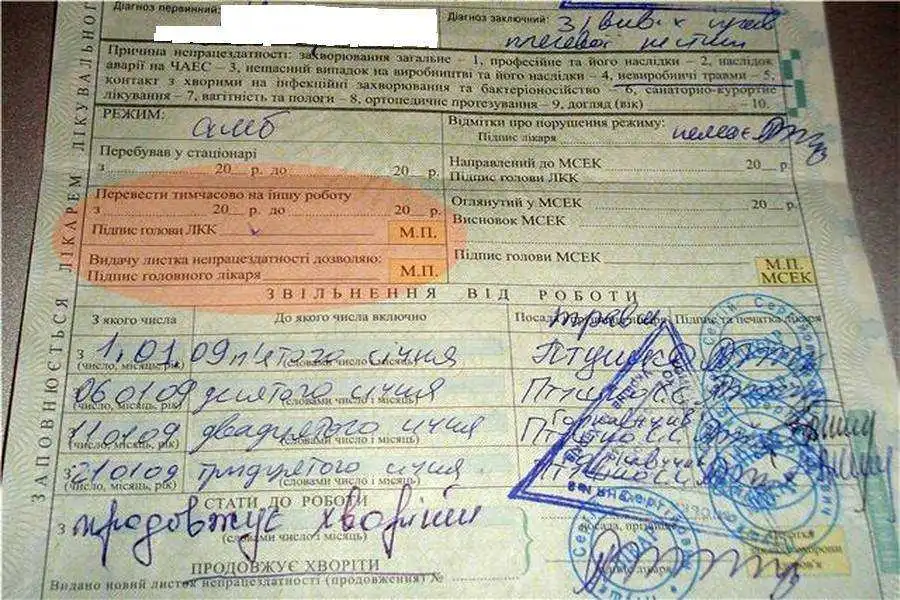 Діагноз первинний:
Діагноз заключний: З/ вивих прав
плечової кістки
Причина непрацездатності: захворювання загальне – 1, професійне та його наслідки – 2, наслідок
аварії на ЧАЕС – 3, нещасний випадок на виробництві та його наслідки – 4, невиробничі травми – 5,
контакт з хворими на інфекційні захворювання та бактеріоносійство – 6, санаторно-курортне
лікування – 7, вагітність та пологи – 8, ортопедичне протезування – 9, догляд (вік) – 10.
РЕЖИМ: амб
Відмітки про порушення режиму:
Підпис лікаря немає
Перебував у стаціонарі
з 20 р. до 20 р.
Направлений до МСЕК 20 р.
Підпис голови ЛКК
Перевести тимчасово на іншу роботу
з 20 р. до 20 р.
Підпис голови ЛКК М.П.
Оглянутий у МСЕК 20 р.
Висновок МСЕК
Видачу листка непрацездатності дозволяю:
Підпис головного лікаря М.П.
Підпис голови МСЕК
М.П.
МСЕК
ЗАПОВНЮЄТЬСЯ ЛІКАРЕМ ЛІКУВАЛЬНОГО
ЗВІЛЬНЕННЯ ВІД РОБОТИ
З якого числа До якого числа включно Посада, лікаря Підпис та печатка лікаря
травм
З 1.01.09 п'ятого січня
(число, місяць, рік) (словами число і місяць)
06 01 09 десятого січня
(число, місяць, рік) (словами число і місяць)
11 01 09 двадцятого січня
(число, місяць, рік) (словами число і місяць)
З 21 01 09 тридцятого січня
(число, місяць, рік) (словами число і місяць)
СТАТИ ДО РОБОТИ
З продовжує хворіти
(словами число і місяць)
посада,
підпис лікаря
ПРОДОВЖУЄ ХВОРІТИ
Видано новий листок непрацездатності (продовження) №